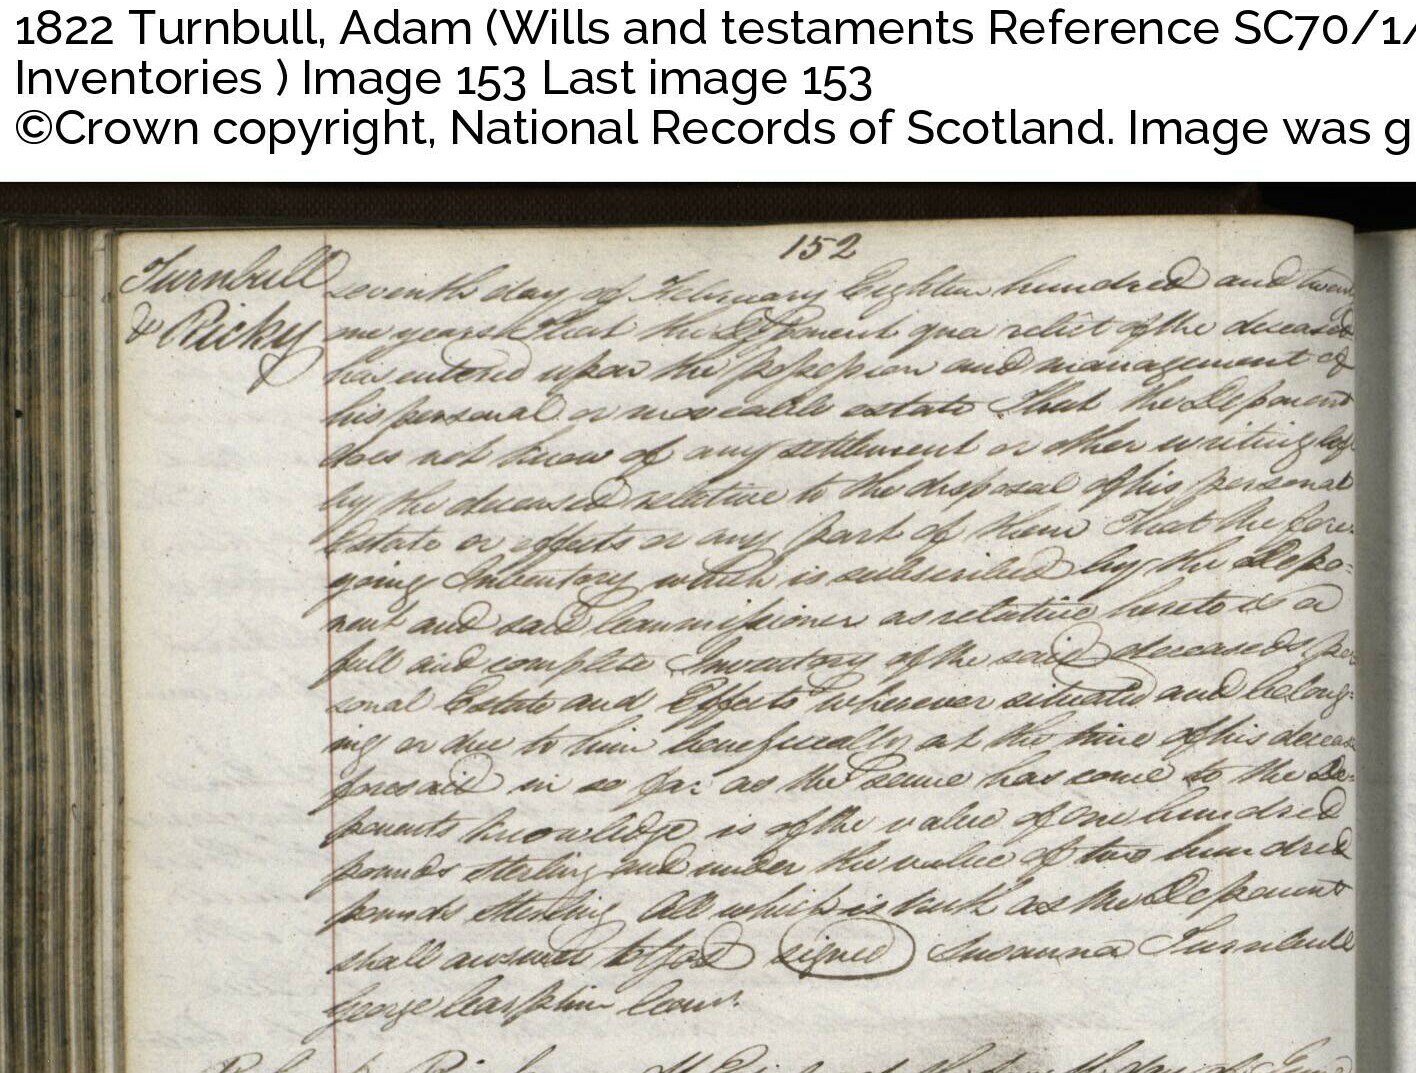 1822 Turnbull, Adam (Wills and testaments Reference SC70/1/
Inventories ) Image 153 Last image 153
©Crown copyright, National Records of Scotland. Image was g
152
Turnbull
& Ricky
seventh day of February Eighteen hundred and twen
one years That the Deponent qua relict of the deceased
has entered upon the possession and management of
his personal or moveable estate That the Deponent
does not know of any settlement or other writing left
by the deceased relative to the disposal of his personal
Estate or effects or any part of them That the fore:
going Inventory which is subscribed by the Depo=
nent and said Commissioner as relative hereto is a
full and complete Inventory of the said deceaseds per
sonal Estate and Effects wherever situated and belong=
ing or due to him beneficially at the time of his decease
foresaid in so far as the same has come to the De=
ponents knowledge is of the value of One hundred
pounds Sterling and under the value of two hundred
pounds Sterling All which is truth as the Deponent
shall answer to God signed Susanna Turnbull
George Comr.